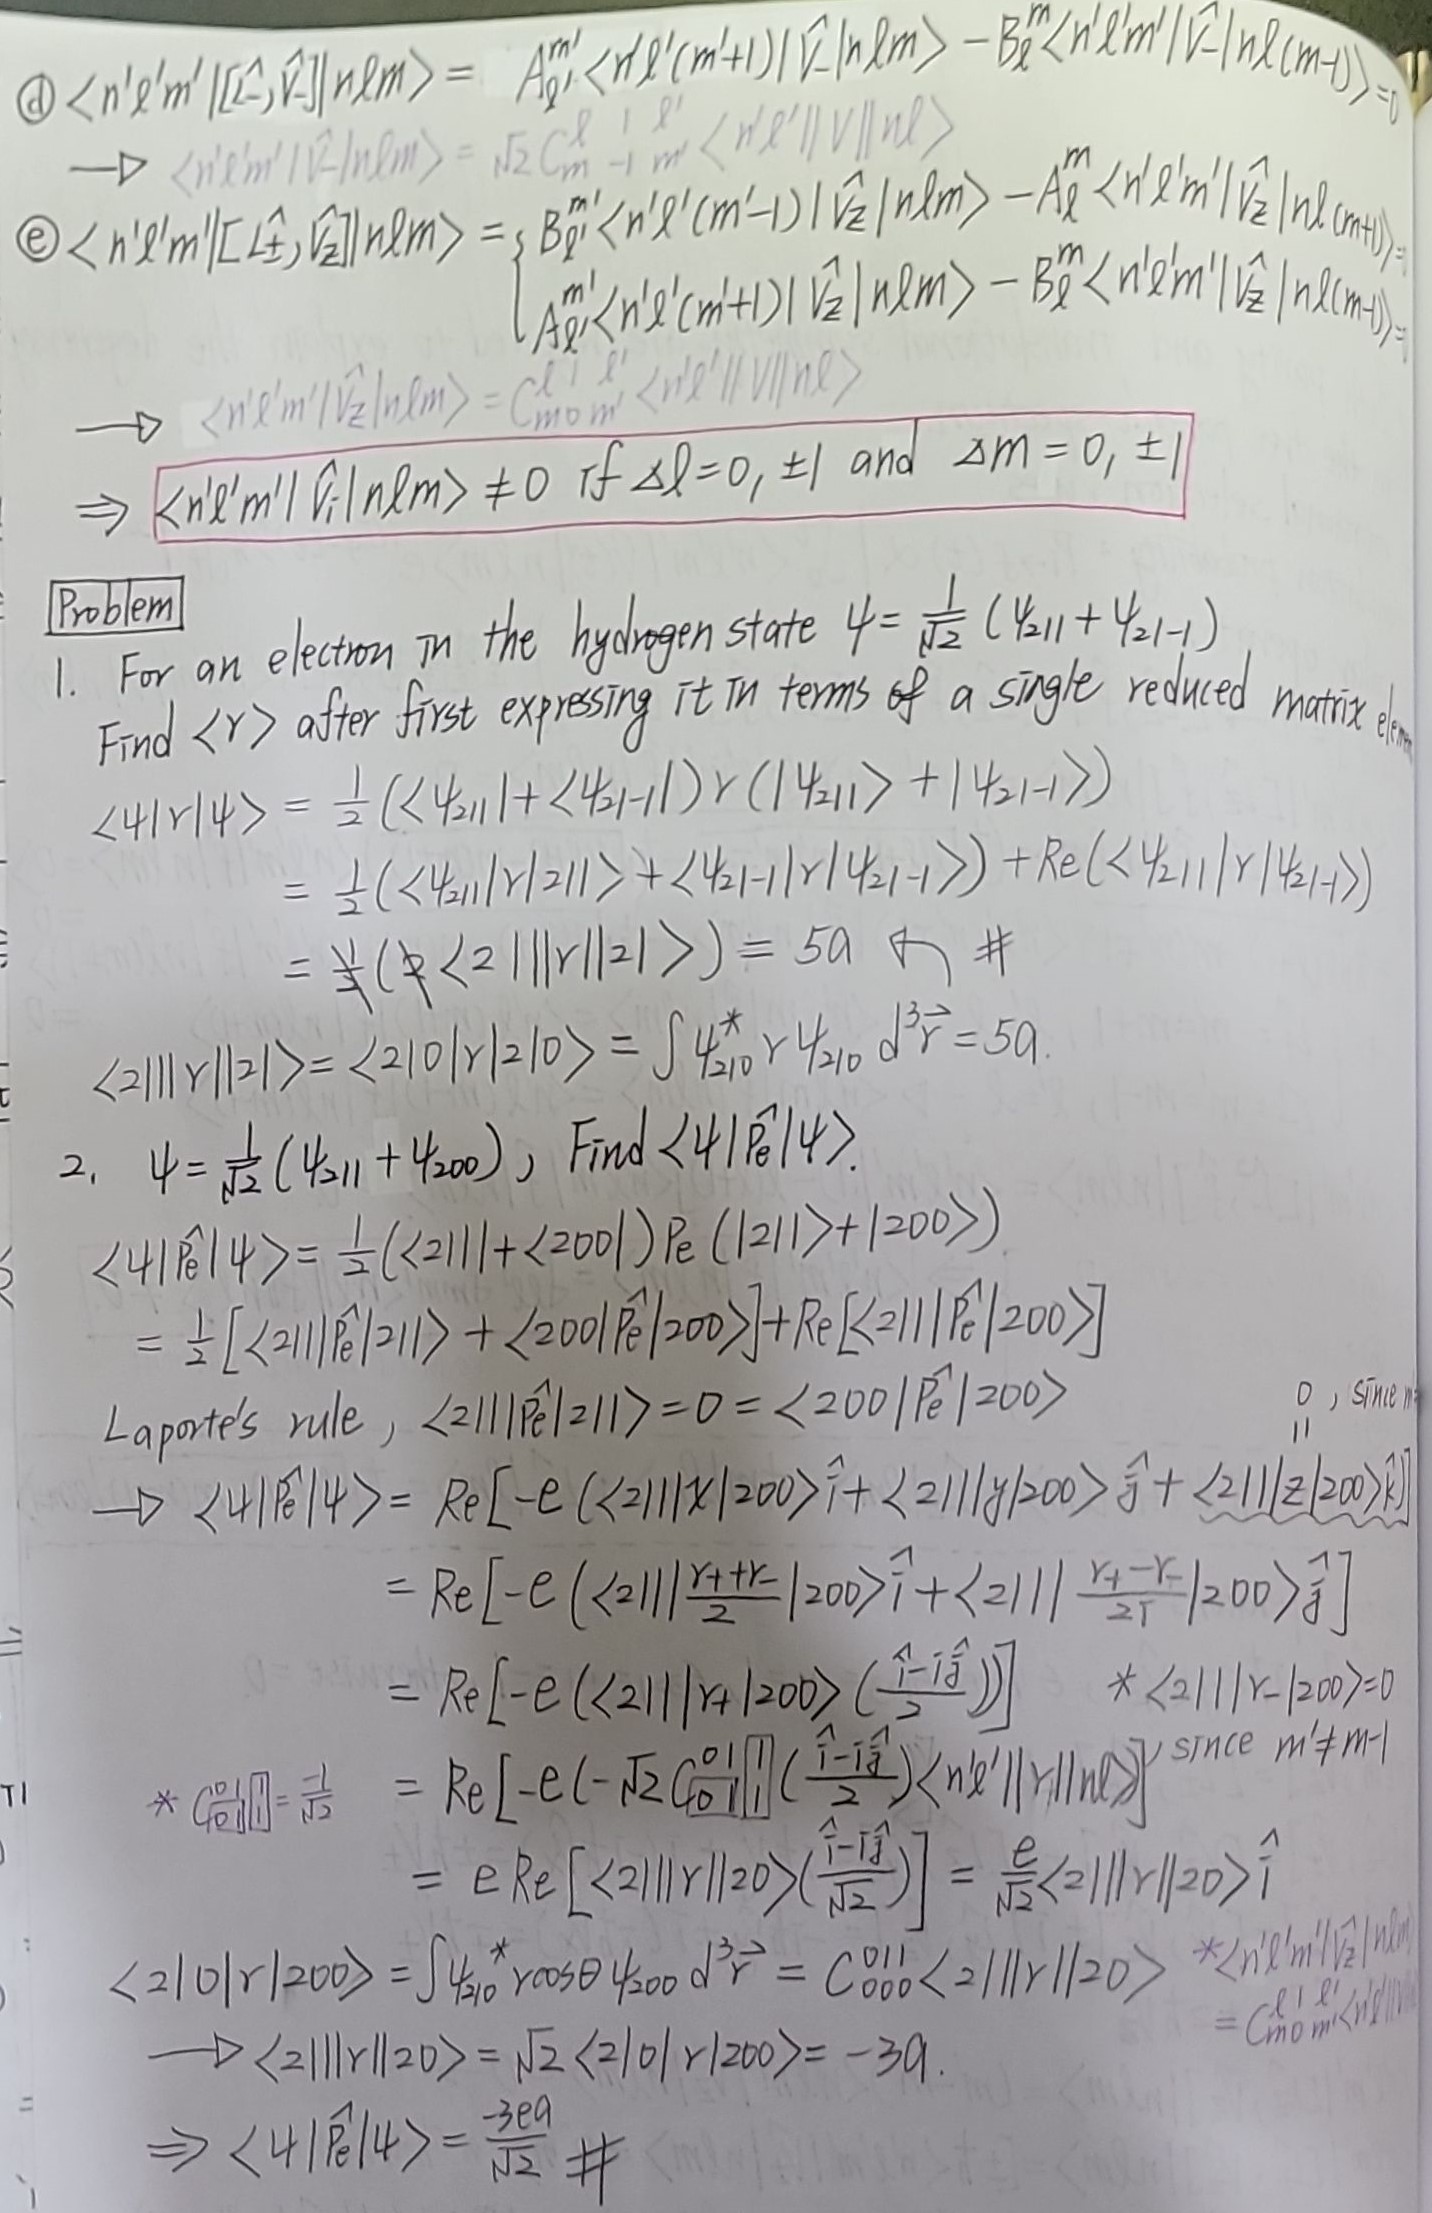 ⓓ <n'l'm'|[L̂-,V̂-]|nlm> = A_l'^m' <n'l'(m'+1)|V̂-|nlm> - B_l^m <n'l'm'|V̂-|nl(m-1)> = 0
→ <n'l'm'|V̂-|nlm> = √2 C^{l 1 l'}_{m -1 m'} <n'l'||V||nl>
ⓔ <n'l'm'|[L̂±,V̂z]|nlm> = { B_l'^m' <n'l'(m'-1)|V̂z|nlm> - A_l^m <n'l'm'|V̂z|nl(m+1)> =
A_l'^m' <n'l'(m'+1)|V̂z|nlm> - B_l^m <n'l'm'|V̂z|nl(m-1)> =
→ <n'l'm'|V̂z|nlm> = C^{l 1 l'}_{m 0 m'} <n'l'||V||nl>
⇒ <n'l'm'|V̂i|nlm> ≠ 0 if Δl = 0, ±1 and Δm = 0, ±1
Problem
1. For an electron in the hydrogen state ψ = 1/√2 (ψ211 + ψ21-1)
Find <r> after first expressing it in terms of a single reduced matrix
<ψ|r|ψ> = 1/2 (<ψ211| + <ψ21-1|) r (|ψ211> + |ψ21-1>)
= 1/2 (<ψ211|r|211> + <ψ21-1|r|ψ21-1>) + Re(<ψ211|r|ψ21-1>)
= 1/2 (2 <21||r||21>) = 5a #
<21||r||21> = <210|r|210> = ∫ψ*210 r ψ210 d³r⃗ = 5a.
2. ψ = 1/√2 (ψ211 + ψ200), Find <ψ|P̂e|ψ>.
<ψ|P̂e|ψ> = 1/2 (<211| + <200|) Pe (|211> + |200>)
= 1/2 [<211|P̂e|211> + <200|P̂e|200>] + Re[<211|P̂e|200>]
Laporte's rule, <211|P̂e|211> = 0 = <200|P̂e|200>
0, since
||
→ <ψ|P̂e|ψ> = Re[-e(<211|x|200> î + <211|y|200> ĵ + <211|z|200> k̂)]
= Re[-e(<211| (r+ + r-)/2 |200> î + <211| (r+ - r-)/2i |200> ĵ]
= Re[-e(<211|r+|200> ((î - iĵ)/2))] * <211|r-|200> = 0
since m' ≠ m-1
= Re[-e(-√2 C^{0 1 1}_{0 1 1} ((î - iĵ)/2) <n'l'||r||nl>]
* C^{0 1 1}_{0 1 1} = -1/√2
= e Re[<21||r||20> ((î - iĵ)/√2)] = e/√2 <21||r||20> î
<210|r|200> = ∫ψ210* r cosθ ψ200 d³r⃗ = C^{0 1 1}_{0 0 0} <21||r||20>
* <n'l'm'|V̂z|nlm>
= C^{l 1 l'}_{m 0 m'} <n'l'||
→ <21||r||20> = √2 <210|r|200> = -3a.
⇒ <ψ|P̂e|ψ> = -3ea/√2 #